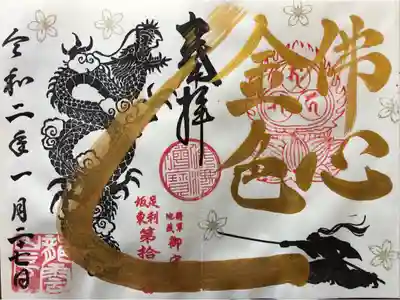 佛心
金色
奉拝
足利
坂東 第拾
御
令和二年一月二七日